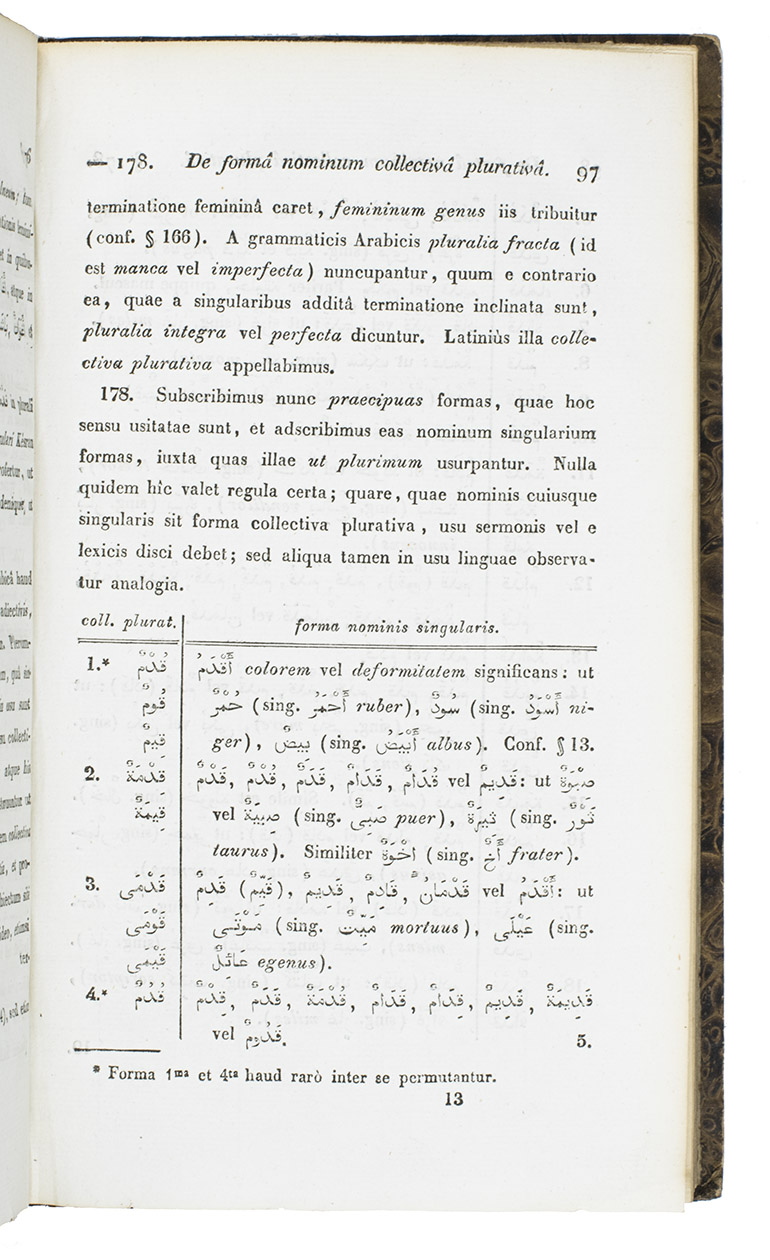 — 178. De formâ nominum collectivâ plurativâ. 97
terminatione femininâ caret, femininum genus iis tribuitur
(conf. § 166). A grammaticis Arabicis pluralia fracta (id
est manca vel imperfecta) nuncupantur, quum e contrario
ea, quae a singularibus additâ terminatione inclinata sunt,
pluralia integra vel perfecta dicuntur. Latiniùs illa colle-
ctiva plurativa appellabimus.
178. Subscribimus nunc praecipuas formas, quae hoc
sensu usitatae sunt, et adscribimus eas nominum singularium
formas, iuxta quas illae ut plurimum usurpantur. Nulla
quidem hîc valet regula certa; quare, quae nominis cuiusque
singularis sit forma collectiva plurativa, usu sermonis vel e
lexicis disci debet; sed aliqua tamen in usu linguae observa-
tur analogia.
coll. plurat. forma nominis singularis.
1.* قُدْمٌ أَقْدَمُ colorem vel deformitatem significans: ut
قُومٌ حُمْرٌ (sing. أَحْمَرُ ruber), سُودٌ (sing. أَسْوَدُ ni-
قِيمٌ ger), بِيضٌ (sing. أَبْيَضُ albus). Conf. § 13.
2. قِدْمَةٌ قَدْمٌ, قَدَمٌ, قَدَامٌ, قُدَامٌ vel قَدِيمٌ: ut صِبْوَةٌ
قِيمَةٌ vel صِبْيَةٌ (sing. صَبِىٌّ puer), ثِيرَةٌ (sing. ثَوْرٌ
taurus). Similiter إِخْوَةٌ (sing. أَخٌ frater).
3. قَدْمَى قَدِمٌ (قَيِّمٌ), قَدِيمٌ, قَادِمٌ, قَدْمَانُ vel أَقْدَمُ: ut
قَوْمَى مَوْتَى (sing. مَيِّتٌ mortuus), عَيْلَى (sing.
قَيْمَى عَائِلٌ egenus).
4.* قُدُمٌ قَدْمٌ, قَدَمٌ, قَدَمَةٌ, قَدَامٌ, قِدَامٌ, قَدِيمٌ, قَدِيمَةٌ
vel قَدُومٌ. 5.
* Forma 1ma et 4ta haud rarò inter se permutantur.
13